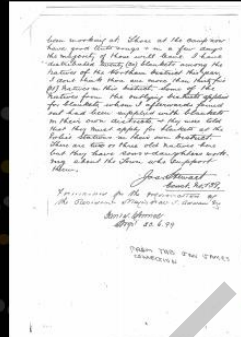 been working at. Those at the camp now
have good little swags & in a few days
the majority of them will leave. I have
distributed twenty (20) blankets among the
Natives of the Northam District this year.
I dont think there are more than thirty five
Natives in this District. Some of the
Natives from the outlying districts applied
for blankets whom I afterwards found
out had been supplied with blankets
in their own districts & they were told
that they must apply for blankets at the
Police Stations in their own District.
There are two or three old natives here
but they have sons & daughters work
ing about the Town who support
them.
Jas. Stewart
Const. No 739.
Forwarded for the information of
the
Sergt 23.6.99
FROM THE JAN JAMES
COLLECTION